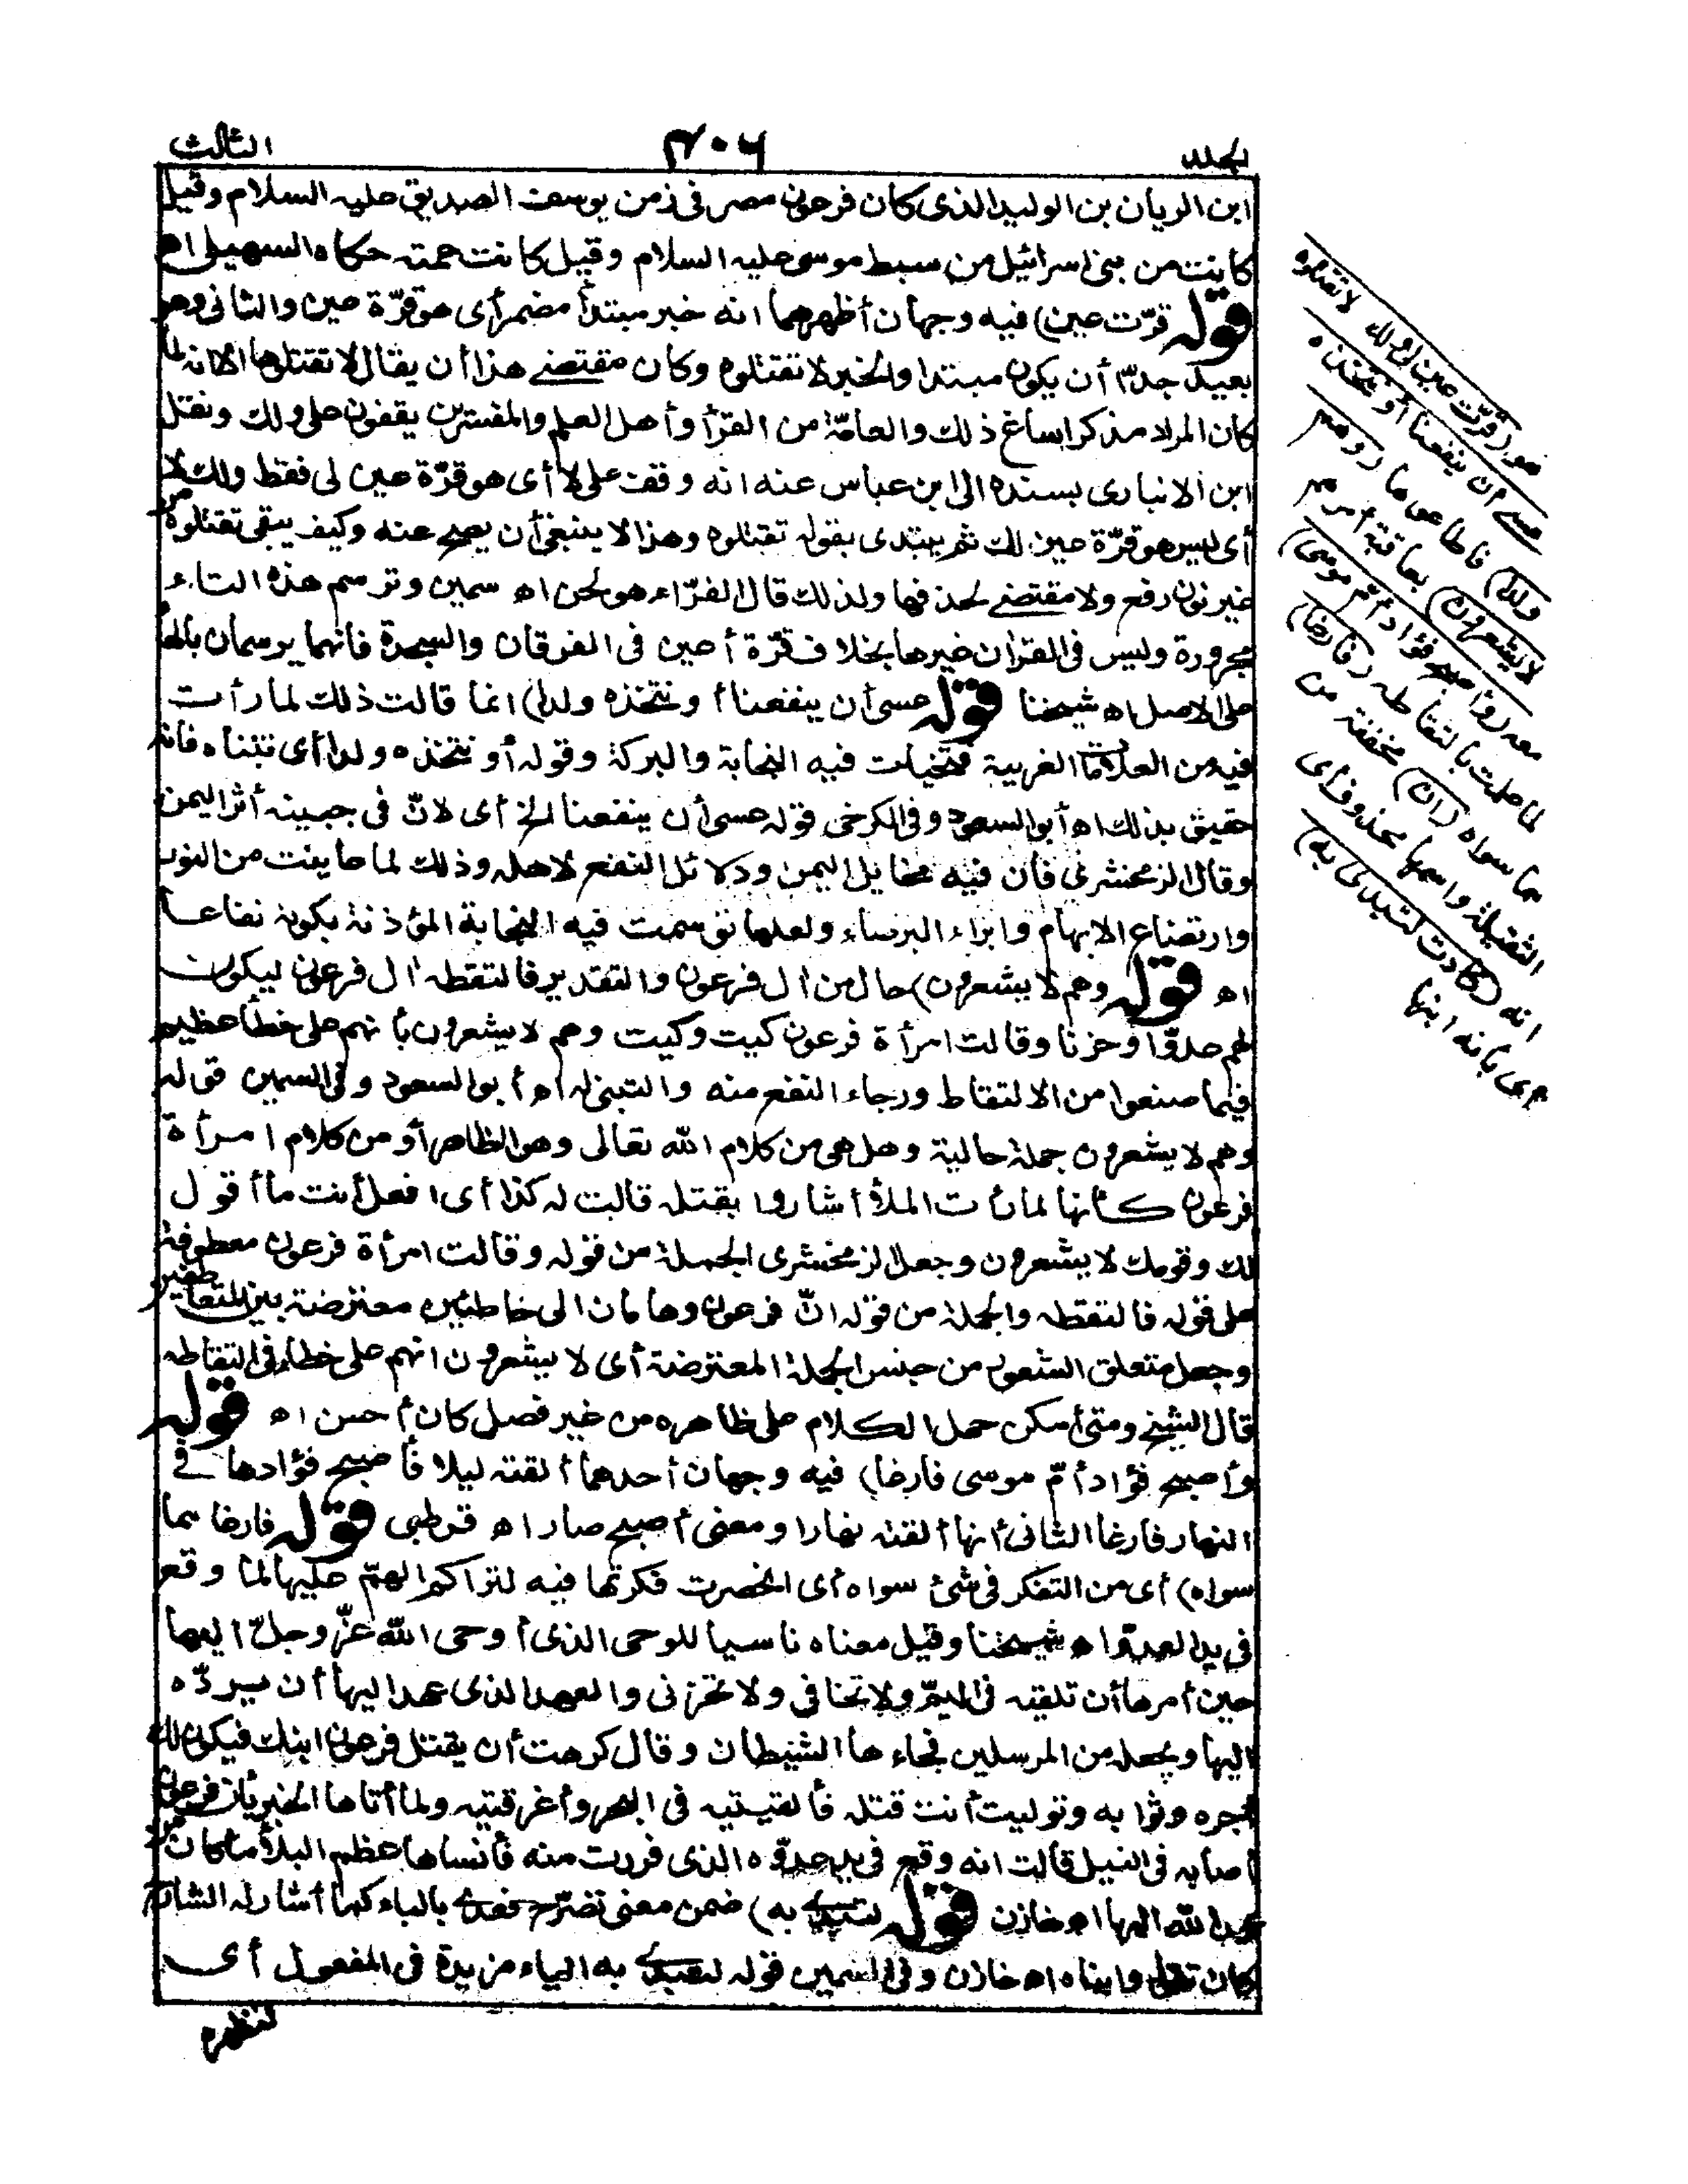 الجلد
٤٠٦
الثالث
ابن الريان بن الوليد الذى كان فرعون مصر فى زمن يوسف الصديق عليه السلام وقيل
كانت من بنى اسرائيل من سبط موسى عليه السلام وقيل كانت عمته حكاه السهيلى اه
قوله قرّت عين) فيه وجهان أظهرهما انه خبر مبتدأ مضمر أى هو قرّة عين والثانى وهو
بعيد جدّا أن يكون مبتدا والخبر لا تقتلوه وكان مقتضے هذا أن يقال لا تقتلوها الا انه لما
كان المراد مذكرا ساغ ذلك والعامّة من القرّأ وأهل العلم والمفسّرين يقفون على ولك ونقل
ابن الانبارى بسنده الى ابن عباس عنه انه وقف على لا أى هو قرّة عين لى فقط ولك لا
أى ليس هو قرّة عين لك ثم يبتدى بقوله تقتلوه وهذا لا ينبغى أن يصح عنه وكيف يبقى تقتلوه من
غير نون رفع ولا مقتضے لحذفها ولذلك قال الفرّاء هو لحن اه سمين وترسم هذه التاء
مجرورة وليس فى القرآن غيرها بخلاف قرّة أعين فى الفرقان والسجدة فانهما يرسمان بالهاء
على الاصل اه شيخنا قوله عسى أن ينفعنا أو نتخذه ولدا) انما قالت ذلك لما رأت
فيه من العلامة الغريبة فتخيلت فيه النجابة والبركة وقوله أو نتخذه ولدا أى نتبناه فانه
حقيق بذلك اه أبو السعود وفى الكرخى قوله عسى أن ينفعنا الخ أى لانّ فى جبينه أثر اليمن
وقال الزمخشرى فان فيه مخايل اليمن ودلائل النفع لاهله وذلك لما عاينت من النور
وارتضاع الابهام وابراء البرصاء ولعلها توسمت فيه النجابة المؤذنة بكونه نفاعا
اه قوله وهم لا يشعرون) حال من ال فرعون والتقدير فالتقطه ال فرعون ليكون
لهم عدوّا وحزنا وقالت امرأة فرعون كيت وكيت وهم لا يشعرون بأنهم على خطأ عظيم
فيما صنعوا من الالتقاط ورجاء النفع منه والتبنى له اه أبو السعود وفى السمين قوله
وهم لا يشعرون جملة حالية وهل هى من كلام الله تعالى وهو الظاهر أو من كلام امرأة
فرعون كأنها لما رأت الملأ أشاروا بقتله قالت له كذا أى افعل أنت ما أقول
لك وقومك لا يشعرون وجعل الزمخشرى الجملة من قوله وقالت امرأة فرعون معطوفة
على قوله فالتقطه والجملة من قوله انّ فرعون وهامان الى خاطئين معترضة بين المتعاطفين
وجعل متعلق الشعور من جنس الجملة المعترضة أى لا يشعرون انهم على خطاء فى التقاطه
قال الشيخ ومتى أمكن حمل الكلام على ظاهره من غير فصل كان أحسن اه قوله
وأصبح فؤاد أمّ موسى فارغا) فيه وجهان أحدهما ألقته ليلا فأصبح فؤادها فے
النهار فارغا الثانى أنها ألقته نهارا ومعنى أصبح صار اه قرطبى قوله فارغا مما
سواه) أى من التفكر فى شئ سواه أى انحصرت فكرتها فيه لتراكم الهمّ عليها لما وقع
فى يد العدوّ اه شيخنا وقيل معناه ناسيا للوحى الذى أوحى الله عزّ وجلّ اليها
حين أمرها أن تلقيه فى اليمّ ولا تخافى ولا تحزنى والعهد الذى عهد اليها أن يردّه
اليها ويجعله من المرسلين فجاءها الشيطان وقال كرهت أن يقتل فرعون ابنك فيكون لك
أجره وثوابه وتوليت أنت قتله فألقيتيه فى البحر وأغرقتيه ولما أتاها الخبر بأن فرعون
أصابه فى النيل قالت انه وقع فى يد عدوّه الذى فررت منه فأنساها عظم البلأ ما كان من
عهد الله اليها اه خازن قوله لتبدے به) ضمن معنى تصرّح فعدے بالباء كما أشار له الشارح
كان تقول وا ابناه اه خازن وفى السمين قوله لتبدے به الباء مزيدة فى المفعول أى
لتظهره
هو (قرّت عين لى ولك لا تقتلوه
عسے أن ينفعنا أو نتخذه
ولدا) فاطاعوها (وهم
لا يشعرون) بعاقبة أمرهم
معه (وأصبح فؤاد أمّ موسى)
لما علمت بالتقاطه (فارغا)
مما سواه (ان) مخففة من
الثقيلة واسمها محذوف أى
انه (كادت لتبدى به)
أى بانه ابنها